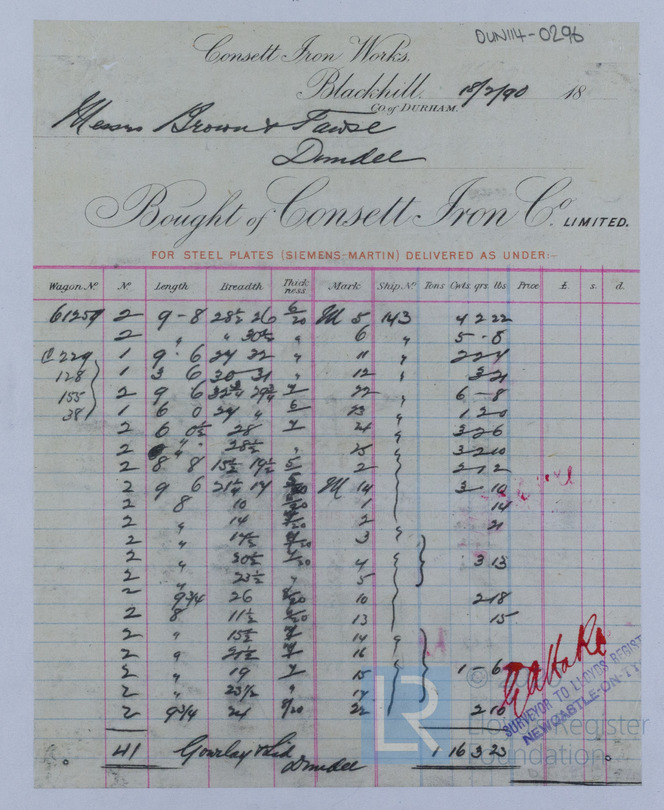 DUN114-0296
Consett Iron Works.
Blackhill. 18/2/90 18
Co. of DURHAM.
Messrs Brown & Fawse
Dundee
Bought of Consett Iron Co. LIMITED.
FOR STEEL PLATES (SIEMENS-MARTIN) DELIVERED AS UNDER:-
Wagon No. No. Length Breadth Thickness Mark Ship No. Tons Cwts qrs lbs Price £. s. d.
61259 2 9-8 28½ 26 6/20 M 5 143 4 2 22
2 " " 30½ " 6 " 5 - 8
C 229 1 9 6 24 22 " 11 " 2 2 4
128 1 3 6 30 31 " 12 " 3 21
155 2 9 6 7 22 " 6 - 8
38 1 6 0 24 " 6 23 " 1 2 0
2 6 0½ 28 7 24 " 3 2 6
2 " 28½ " 25 " 3 2 10
2 8 8 15½ 19½ 5 2 2 - 12
2 9 6 14 M 14 3 - 10
2 8 10 1 14
2 " 14 2 21
2 " 14½ 3
2 " 20½ 4 3 13
2 " 23½ " 5
2 9¾ 26 10 2 18
2 8 11½ 13 15
2 " 15½ 14
2 " 16
2 " 19 7 15 1 - 6
2 " 23½ " 17
2 9¾ 24 8/20 22 2 10
41 Gourlay & Ltd 1 16 3 23
Dundee
SURVEYOR TO LLOYDS REGIST
NEWCASTLE-ON-TY
LR
©
Lloyd's Register
Foundation